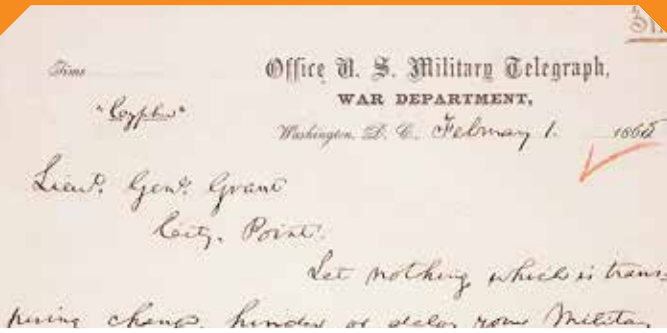 Time
Office U. S. Military Telegraph,
WAR DEPARTMENT,
"Cypher"
Washington, D. C. February 1. 1865
Lieut. Genl. Grant
City Point.
Let nothing which is trans-
piring change, hinder or delay your Military